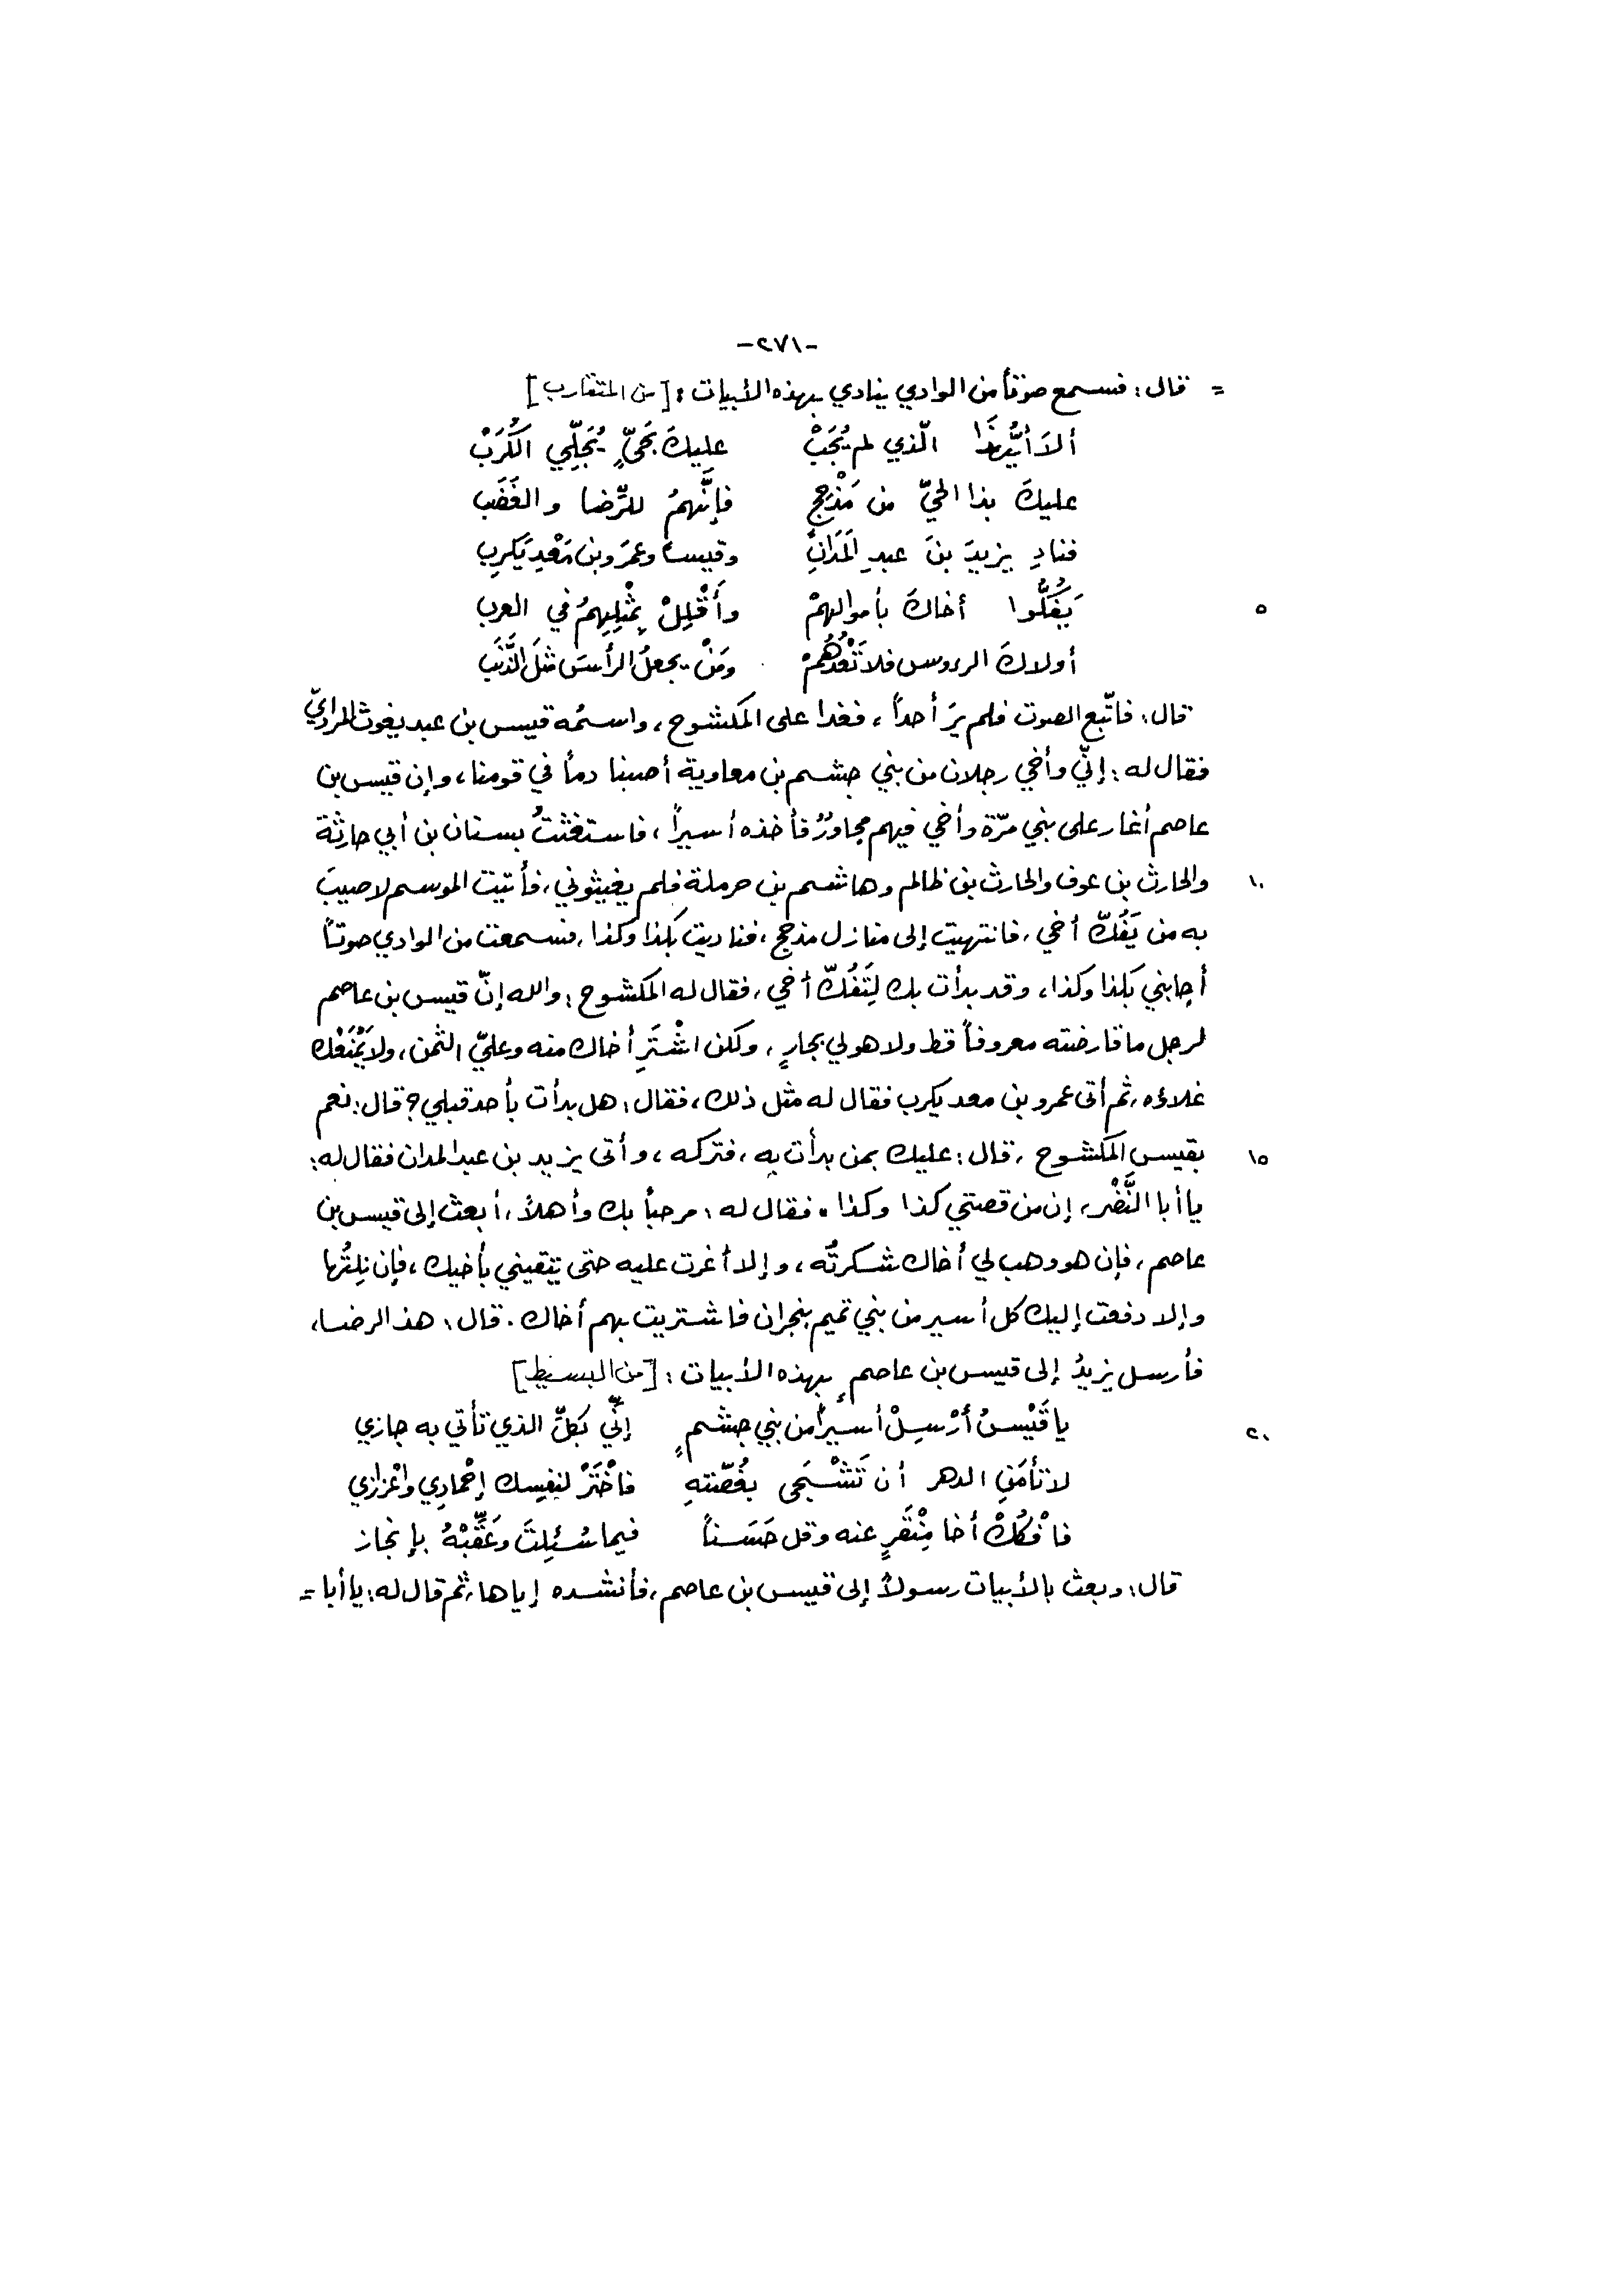 -٢٧١-
= قال: فسمع صوتاً من الوادي ينادي بهذه الأبيات: [من المتقارب]
ألاَ أيُّهَذَا الّذي لم يُجَبْ عليكَ بحَيٍّ يُجَلِّي الكُرَبْ
عليكَ بذا الحيّ من مَذْحِجٍ فإنَّهمُ للرِّضا والغَضَب
فنادِ يزيدَ بنَ عبدِ المَدَانِ وقيساً وعمرَو بن مَعْدِيَكرِب
٥ يَفُكُّوا أخاكَ بأموالهمْ وأَقْلِلْ بِمْثلِهِمُ في العرب
أولاكَ الرءوس فلا تَعْدُهُمْ ومَنْ يجعلُ الرأسَ مثلَ الذَّنَب
قال: فاتّبع الصوت فلم يرَ أحداً، فغدا على المكشوح، واسمُه قيس بن عبد يغوث المراديّ
فقال له: إنّي وأخي رجلان من بني جشم بن معاوية أصبنا دماً في قومنا، وإن قيس بن
عاصم أغار على بني مرّة وأخي فيهم مجاورٌ فأخذه أسيراً، فاستغثتُ بسنان بن أبي حارثة
١٠ والحارث بن عوف والحارث بن ظالم وهاشم بن حرملة فلم يغيثوني، فأتيت الموسم لاصيبَ
به من يَفُكّ أخي، فانتهيت إلى منازل مذحج، فناديت بكذا وكذا، فسمعت من الوادي صوتاً
أجابني بكذا وكذا، وقد بدأت بك لِتَفُكّ أخي، فقال له المكشوح: والله إنّ قيس بن عاصم
لرجل ما قارضته معروفاً قط ولا هو لي بجارٍ، ولكن اشْتَرِ أخاك منه وعليّ الثمن، ولا يَمْنَعْك
غلاؤه، ثم أتى عمرو بن معد يكرب فقال له مثل ذلك، فقال: هل بدأت بأحد قبلي؟ قال: نعم
١٥ بقيس المكشوح، قال: عليك بمن بدأت به، فتركه، وأتى يزيد بن عبد المدان فقال له:
يا أبا النَّضْر، إن من قصتي كذا وكذا. فقال له: مرحباً بك وأهلاً، أبعث إلى قيس بن
عاصم، فإن هو وهب لي أخاك شكرتُه، وإلا أغرت عليه حتى يتقيني بأخيك، فإن نِلتُها
وإلا دفعت إليك كل أسير من بني تميم بنجران فاشتريت بهم أخاك. قال: هذا الرضا،
فأرسل يزيدُ إلى قيس بن عاصمٍ بهذه الأبيات: [من البسيط]
٢٠ يا قَيْسُ أرْسِلْ أسيراً من بني جشمٍ إنّي بكلّ الذي تأتي به جازي
لا تأمَنِ الدهر أن تَشْجَى بغُصّتهِ فاخْتَرْ لنفسِك إحْمادِي واعْزازي
فافْكُكْ أخا مِنْقَرٍ عنه وقل حَسَناً فيما سُئِلتَ وعَقِّبْهُ بإنجاز
قال: وبعث بالأبيات رسولاً إلى قيس بن عاصم، فأنشده إياها، ثم قال له: يا أبا =